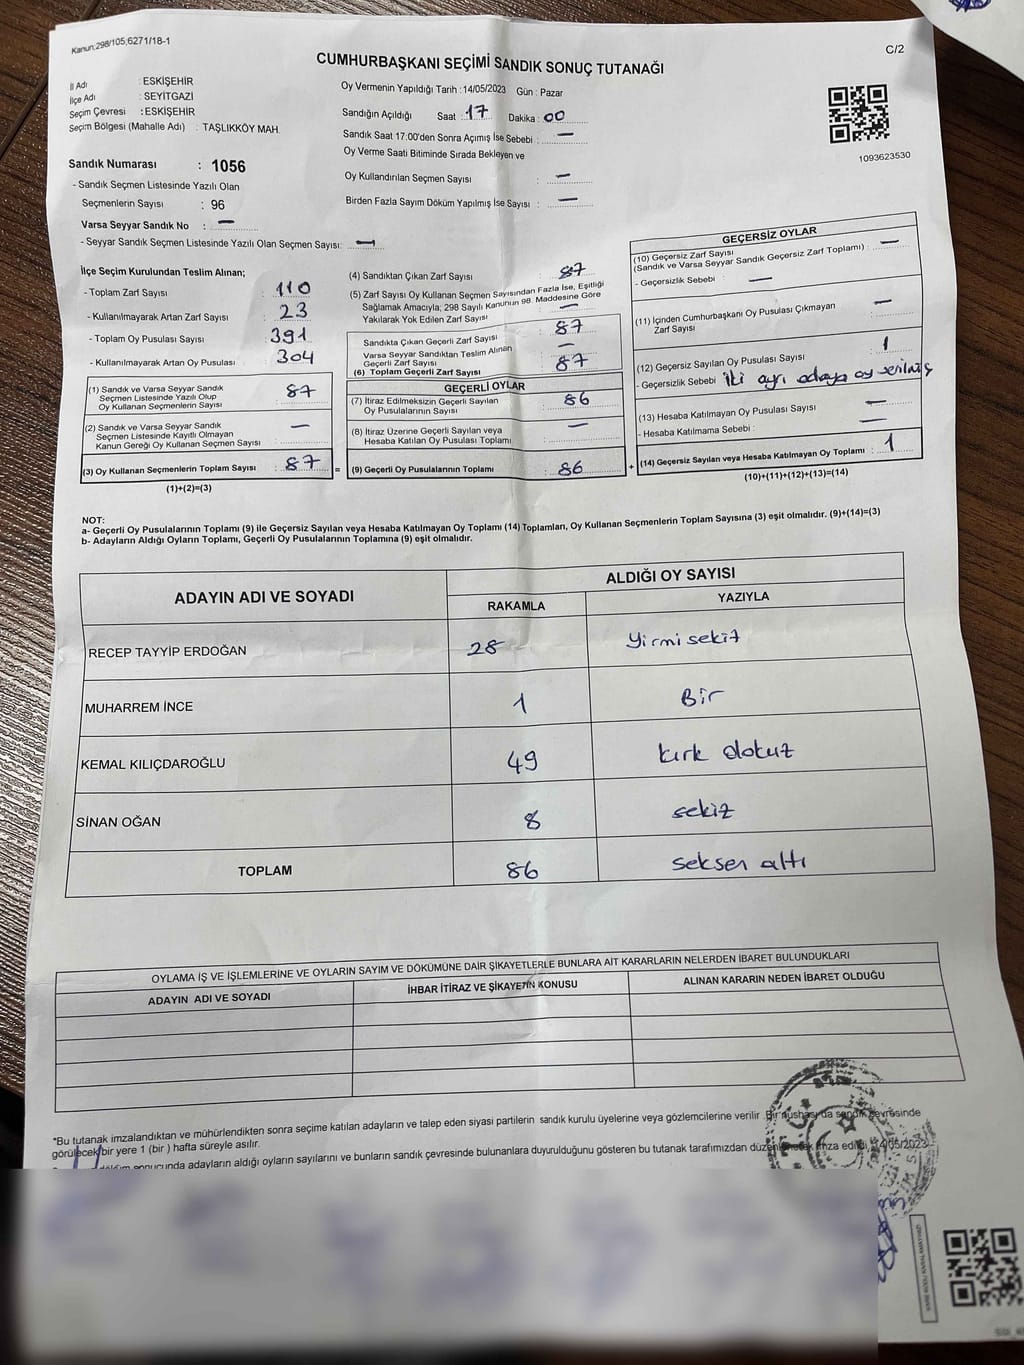 Kanun:298/105;6271/18-1
C/2
CUMHURBAŞKANI SEÇİMİ SANDIK SONUÇ TUTANAĞI
İl Adı : ESKİŞEHİR
İlçe Adı : SEYİTGAZİ
Seçim Çevresi : ESKİŞEHİR
Seçim Bölgesi (Mahalle Adı) : TAŞLIKKÖY MAH.
Sandık Numarası : 1056
- Sandık Seçmen Listesinde Yazılı Olan
Seçmenlerin Sayısı : 96
Varsa Seyyar Sandık No : —
- Seyyar Sandık Seçmen Listesinde Yazılı Olan Seçmen Sayısı: —
Oy Vermenin Yapıldığı Tarih : 14/05/2023 Gün : Pazar
Sandığın Açıldığı Saat : 17 Dakika : 00
Sandık Saat 17:00'den Sonra Açımış İse Sebebi : —
Oy Verme Saati Bitiminde Sırada Bekleyen ve
Oy Kullandırılan Seçmen Sayısı : —
Birden Fazla Sayım Döküm Yapılmış İse Sayısı : —
1093623530
İlçe Seçim Kurulundan Teslim Alınan;
- Toplam Zarf Sayısı : 110
- Kullanılmayarak Artan Zarf Sayısı : 23
- Toplam Oy Pusulası Sayısı : 391
- Kullanılmayarak Artan Oy Pusulası : 304
(1) Sandık ve Varsa Seyyar Sandık
Seçmen Listesinde Yazılı Olup
Oy Kullanan Seçmenlerin Sayısı : 87
(2) Sandık ve Varsa Seyyar Sandık
Seçmen Listesinde Kayıtlı Olmayan
Kanun Gereği Oy Kullanan Seçmen Sayısı : —
(3) Oy Kullanan Seçmenlerin Toplam Sayısı : 87 =
(1)+(2)=(3)
(4) Sandıktan Çıkan Zarf Sayısı : 87
(5) Zarf Sayısı Oy Kullanan Seçmen Sayısından Fazla İse, Eşitliği
Sağlamak Amacıyla; 298 Sayılı Kanunun 98. Maddesine Göre
Yakılarak Yok Edilen Zarf Sayısı : —
Sandıkta Çıkan Geçerli Zarf Sayısı : 87
Varsa Seyyar Sandıktan Teslim Alınan
Geçerli Zarf Sayısı : —
(6) Toplam Geçerli Zarf Sayısı : 87
GEÇERLİ OYLAR
(7) İtiraz Edilmeksizin Geçerli Sayılan
Oy Pusulalarının Sayısı : 86
(8) İtiraz Üzerine Geçerli Sayılan veya
Hesaba Katılan Oy Pusulası Toplamı : —
(9) Geçerli Oy Pusulalarının Toplamı : 86 +
GEÇERSİZ OYLAR
(10) Geçersiz Zarf Sayısı
(Sandık ve Varsa Seyyar Sandık Geçersiz Zarf Toplamı) : —
- Geçersizlik Sebebi : —
(11) İçinden Cumhurbaşkanı Oy Pusulası Çıkmayan
Zarf Sayısı : —
(12) Geçersiz Sayılan Oy Pusulası Sayısı : 1
- Geçersizlik Sebebi : iki ayrı adaya oy verilmiş
(13) Hesaba Katılmayan Oy Pusulası Sayısı : —
- Hesaba Katılmama Sebebi : —
(14) Geçersiz Sayılan veya Hesaba Katılmayan Oy Toplamı : 1
(10)+(11)+(12)+(13)=(14)
NOT:
a- Geçerli Oy Pusulalarının Toplamı (9) ile Geçersiz Sayılan veya Hesaba Katılmayan Oy Toplamı (14) Toplamları, Oy Kullanan Seçmenlerin Toplam Sayısına (3) eşit olmalıdır. (9)+(14)=(3)
b- Adayların Aldığı Oyların Toplamı, Geçerli Oy Pusulalarının Toplamına (9) eşit olmalıdır.
ADAYIN ADI VE SOYADI
ALDIĞI OY SAYISI
RAKAMLA YAZIYLA
RECEP TAYYİP ERDOĞAN 28 Yirmi sekiz
MUHARREM İNCE 1 Bir
KEMAL KILIÇDAROĞLU 49 kırk dokuz
SİNAN OĞAN 8 sekiz
TOPLAM 86 seksen altı
OYLAMA İŞ VE İŞLEMLERİNE VE OYLARIN SAYIM VE DÖKÜMÜNE DAİR ŞİKAYETLERLE BUNLARA AİT KARARLARIN NELERDEN İBARET BULUNDUKLARI
ADAYIN ADI VE SOYADI İHBAR İTİRAZ VE ŞİKAYETİN KONUSU ALINAN KARARIN NEDEN İBARET OLDUĞU
*Bu tutanak imzalandıktan ve mühürlendikten sonra seçime katılan adayların ve talep eden siyasi partilerin sandık kurulu üyelerine veya gözlemcilerine verilir. Bir nüshası da sandık çevresinde
görülecek bir yere 1 (bir) hafta süreyle asılır.
sonucunda adayların aldığı oyların sayılarını ve bunların sandık çevresinde bulunanlara duyurulduğunu gösteren bu tutanak tarafımızdan düzenlenerek imza edildi. 14/05/2023